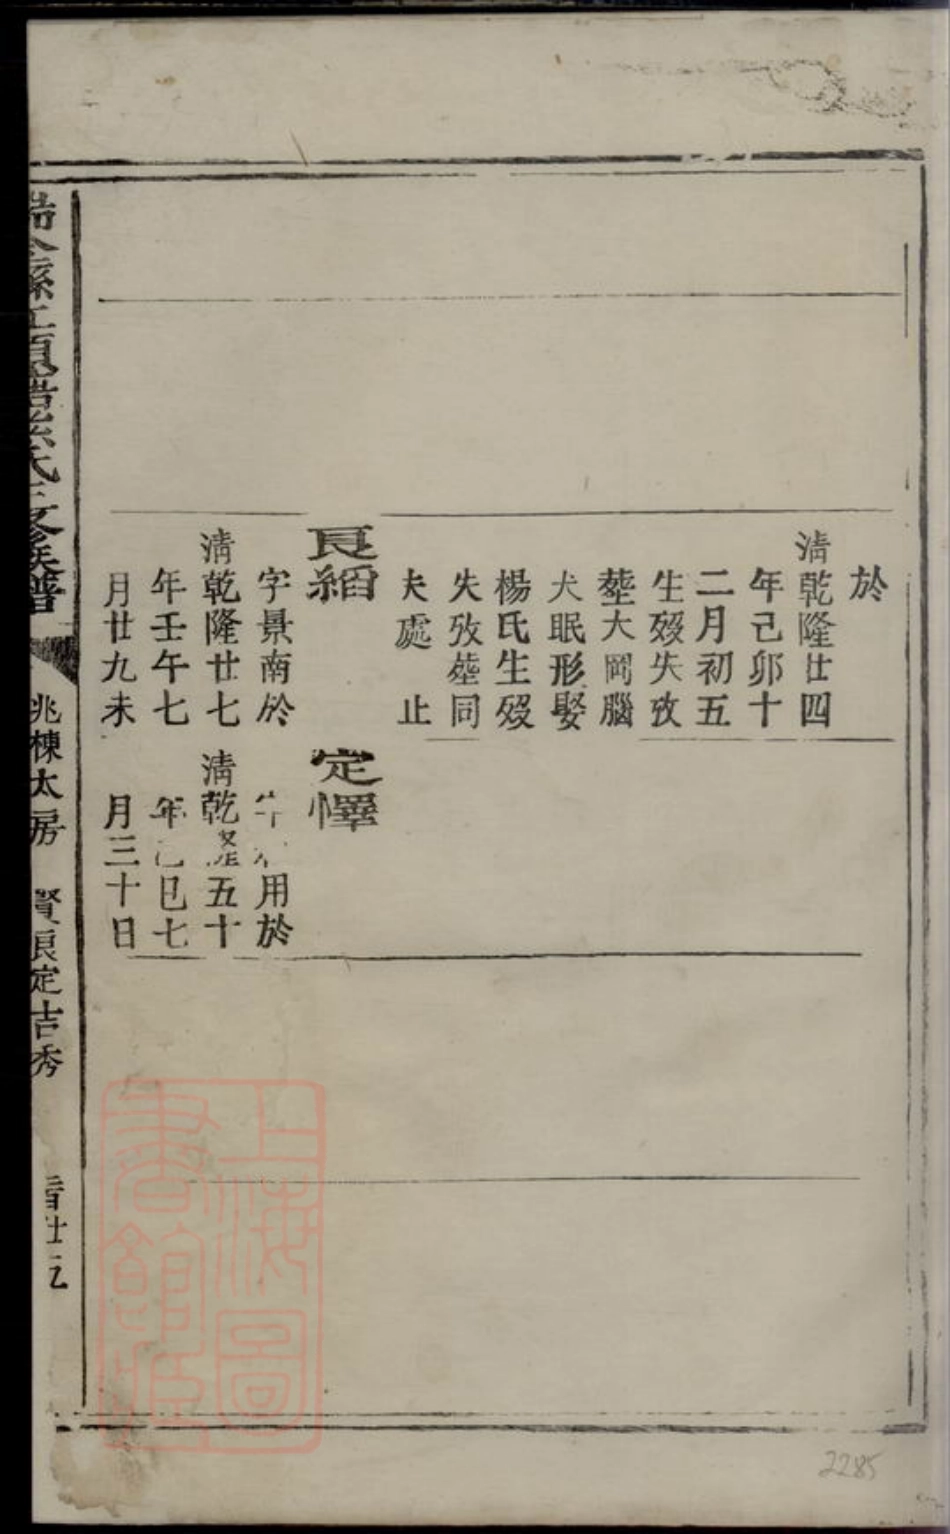 於
清乾隆廿四
年己卯十
二月初五
生歿失攷
塟大岡腦
犬眠形娶
楊氏生歿
失攷塟同
夫處 止
良縚
字景南於
清乾隆廿七
年壬午七
月廿九未
定懌
用於
清乾隆五十
年乙巳七
月三十日
氏三修族譜
兆棟太房 賢良定吉秀
上海圖
書館藏
2285